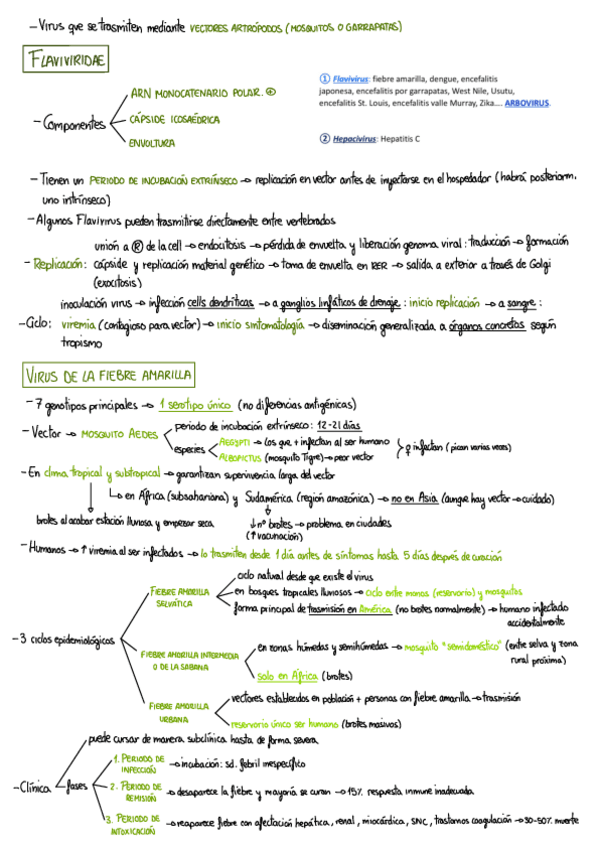 - Virus que se trasmiten mediante VECTORES ARTRÓPODOS (MOSQUITOS O GARRAPATAS)
FLAVIVIRIDAE
- Componentes
ARN MONOCATENARIO POLAR. ⊕
CÁPSIDE ICOSAÉDRICA
ENVOLTURA
① Flavivirus: fiebre amarilla, dengue, encefalitis
japonesa, encefalitis por garrapatas, West Nile, Usutu,
encefalitis St. Louis, encefalitis valle Murray, Zika.... ARBOVIRUS.
② Hepacivirus: Hepatitis C
- Tienen un PERIODO DE INCUBACIÓN EXTRÍNSECO → replicación en vector antes de inyectarse en el hospedador (habrá posteriorm.
uno intrínseco)
- Algunos Flavivirus pueden trasmitirse directamente entre vertebrados
unión a ® de la cell → endocitosis → pérdida de envuelta y liberación genoma viral: traducción → formación
- Replicación: cápside y replicación material genético → toma de envuelta en RER → salida a exterior a través de Golgi
(exocitosis)
inoculación virus → infección cells dendríticas → a ganglios linfáticos de drenaje: inicio replicación → a sangre:
- Ciclo: viremia (contagioso para vector) → inicio sintomatología → diseminación generalizada a órganos concretos según
tropismo
VIRUS DE LA FIEBRE AMARILLA
- 7 genotipos principales → 1 serotipo único (no diferencias antigénicas)
- Vector → MOSQUITO AEDES
periodo de incubación extrínseco: 12-21 días
especies
AEGYPTI → los que + infectan al ser humano
ALBOPICTUS (mosquito Tigre) → peor vector
♀ infectan (pican varias veces)
- En clima tropical y subtropical → garantizan supervivencia larga del vector
↳ en África (subsahariana) y Sudamérica (región amazónica) → no en Asia (aunque hay vector → cuidado)
brotes al acabar estación lluviosa y empezar seca
↓ nº brotes → problema en ciudades
(↑ vacunación)
- Humanos → ↑ viremia al ser infectados → lo trasmiten desde 1 día antes de síntomas hasta 5 días después de curación
- 3 ciclos epidemiológicos
FIEBRE AMARILLA
SELVÁTICA
ciclo natural desde que existe el virus
en bosques tropicales lluviosos → ciclo entre monos (reservorio) y mosquitos
forma principal de trasmisión en América (no brotes normalmente) → humano infectado
accidentalmente
FIEBRE AMARILLA INTERMEDIA
O DE LA SABANA
en zonas húmedas y semihúmedas → mosquito "semidoméstico" (entre selva y zona
rural próxima)
solo en África (brotes)
FIEBRE AMARILLA
URBANA
vectores establecidos en población + personas con fiebre amarilla → trasmisión
reservorio único ser humano (brotes masivos)
- Clínica
puede cursar de manera subclínica hasta de forma severa
fases
1. PERIODO DE
INFECCIÓN
→ incubación: sd. febril inespecífico
2. PERIODO DE
REMISIÓN
→ desaparece la fiebre y mayoría se curan → 15% respuesta inmune inadecuada
3. PERIODO DE
INTOXICACIÓN
→ reaparece fiebre con afectación hepática, renal, miocárdica, SNC, trastornos coagulación → 30-50% muerte